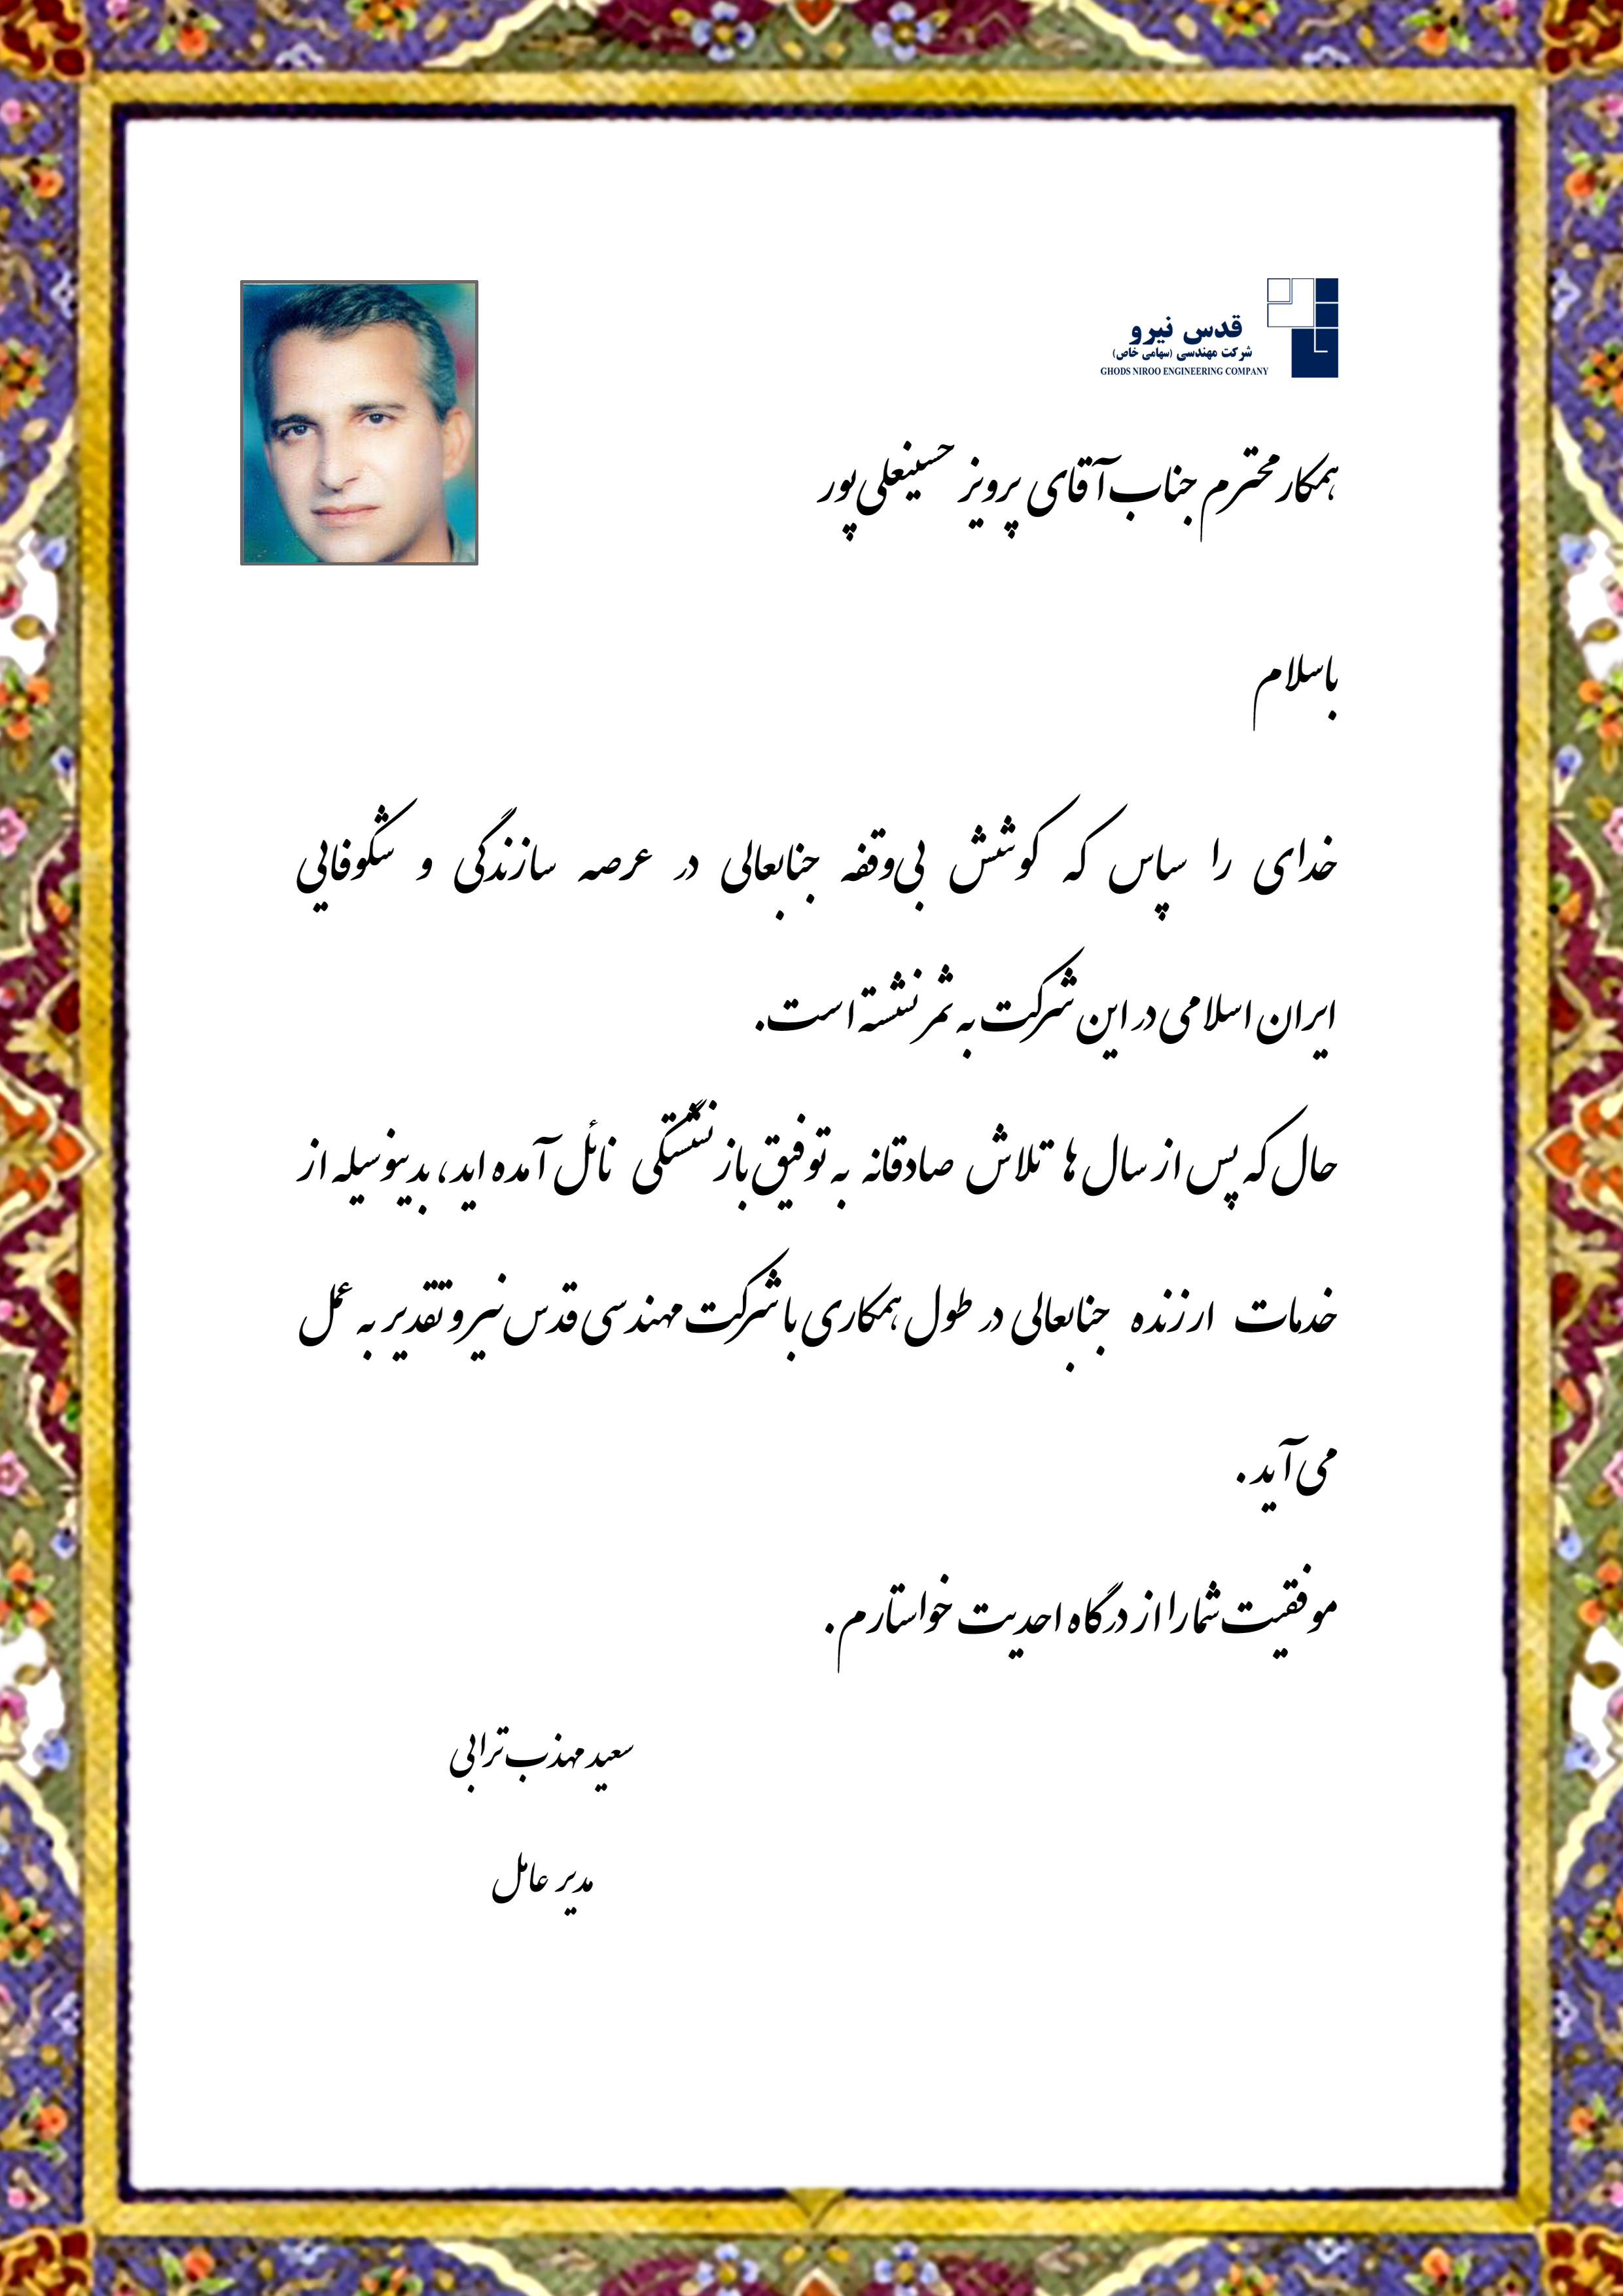 قدس نیرو
شرکت مهندسی (سهامی خاص)
GHODS NIROO ENGINEERING COMPANY
همکار محترم جناب آقای پرویز حسینعلی‌پور
باسلام
خدای را سپاس که کوشش بی‌وقفه جنابعالی در عرصه سازندگی و شکوفایی
ایران اسلامی در این شرکت به ثمر نشسته است.
حال که پس از سال ها تلاش صادقانه به توفیق بازنشستگی نائل آمده اید، بدینوسیله از
خدمات ارزنده جنابعالی در طول همکاری با شرکت مهندسی قدس نیرو تقدیر به عمل
می‌آید.
موفقیت شما را از درگاه احدیت خواستارم.
سعید مهذب ترابی
مدیر عامل